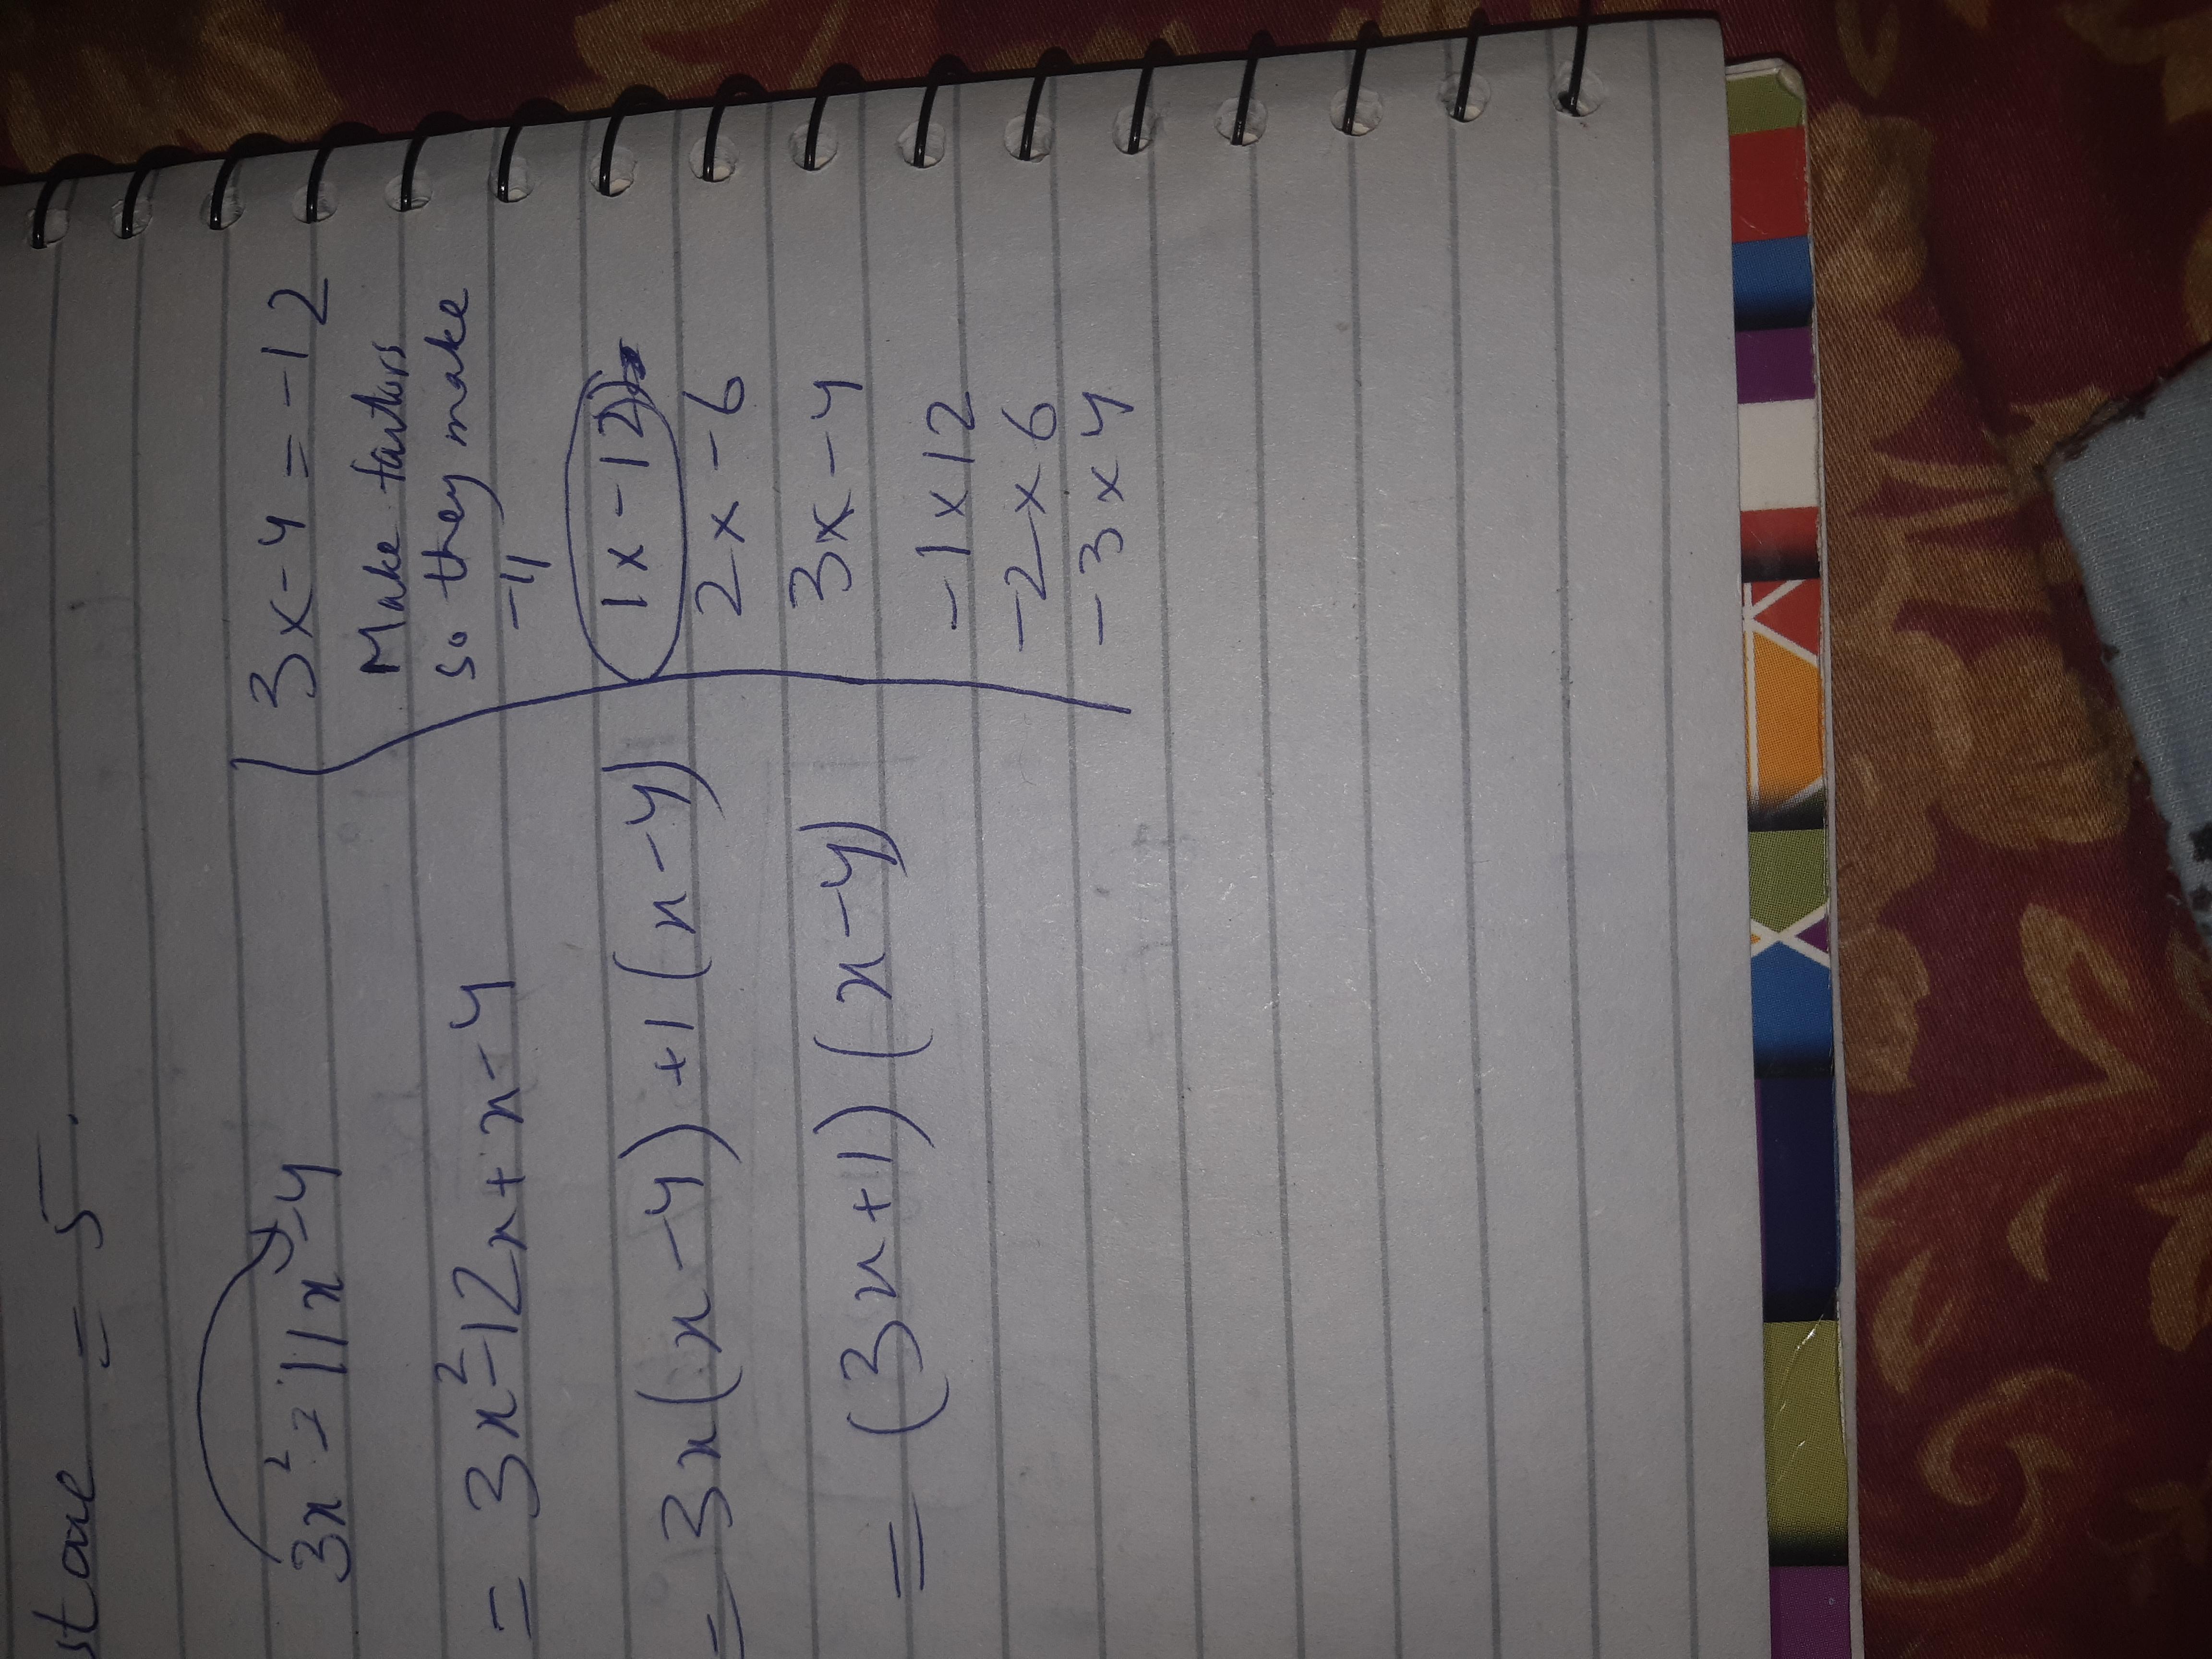 = 5.
3x² - 11x - 4
= 3x² - 12x + x - 4
= 3x(x - 4) + 1(x - 4)
= (3x + 1) (x - 4)
3 x - 4 = - 12
Make factors
so they make
- 11
1 x - 12
2 x - 6
3 x - 4
- 1 x 12
- 2 x 6
- 3 x 4